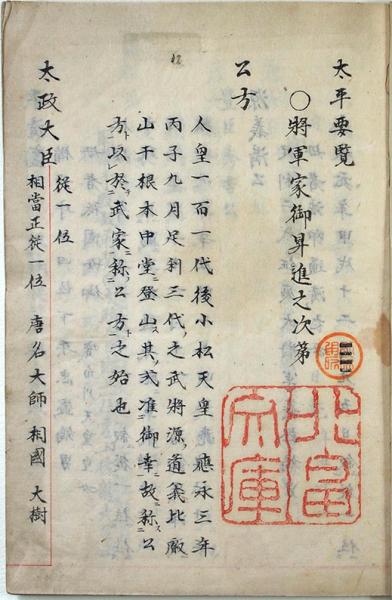 太平要覧
○將軍家御昇進之次第
公方
人皇一百一代後小松天皇應永三年
丙子九月足利三代之武將源道義比叡
山于根本中堂登山其式准御幸故称公
方以於武家称公方之始也
太政大臣
從一位
相當正從一位 唐名大師 相國 大樹
北畠
文庫